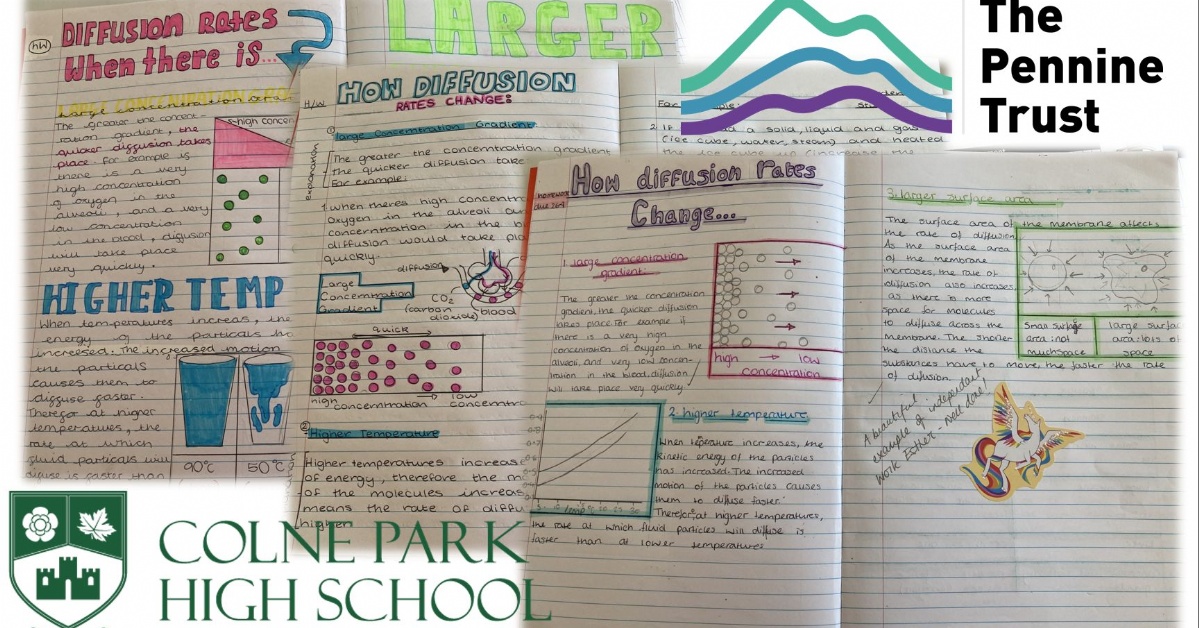 HW
DIFFUSION RATES
When there is...
LARGE CONCENTRATION
The greater the concent-
ration gradient, the
quicker diffusion takes
place. For example is
there is a very
high concentration
of oxygen in the
alveoli, and a very
low concentration
in the blood, diffusion
will take place
very quickly.
HIGHER TEMP
When temperatures increas, the
energy of the particals
increased. The increased motion
the particals
causes them to
diffuse faster.
Therefor at higher
temperatures, the
rate at which
fluid particals will
diffuse is faster than
90°C
50°C
LARGER
H/W
HOW DIFFUSION
RATES CHANGE:
① large Concentration Gradient
explanation
The greater the concerntration gradient
the quicker diffusion take
For example:
1. when theres high concentr
oxygen in the alveoli
concerntration in the b
diffusion would take pla
quickly.
diffusion
Large
Concentration
Gradient
CO₂
(carbon
dioxide)
blood
quick
high
concerntration
low
concerntr
② Higher Temperature
Higher temperatures increase
of energy, therefore the m
of the molecules increas
means the rate of diffu
higher
2. If
a solid, liquid and gas
(ice cube, water, steam) and heated
The
Pennine
Trust
homework
How diffusion rates
Change...
1. large concentration
gradient:
The greater the concentration
gradient, the quicker diffusion
takes place. For example if
there is a very high
concentration of oxygen in the
alveoli and very low concen-
tration in the blood, diffusion
will take place very quickly
high → low
concentration
2. higher temperature
When teperature increases, the
kinetic energy of the particles
has increased. The increased
motion of the particles causes
them to diffuse faster.
Therefor at higher temperatures,
the rate at which fluid particles will diffuse is
faster than at lower temperatures
temp °C
3. larger surface area
The surface area of the membrane affects
the rate of diffusion.
As the surface area
of the membrane
increases, the rate of
diffusion also increases,
as there is more
space for molecules
to diffuse across the
membrane. The shorter
the distance the
substances have to move, the faster the rate
of diffusion.
Small surface
area: not
much space
large surface
area: lots of
space
A beautiful
example of independant
work Esther - well done!
COLNE PARK
HIGH SCHOOL